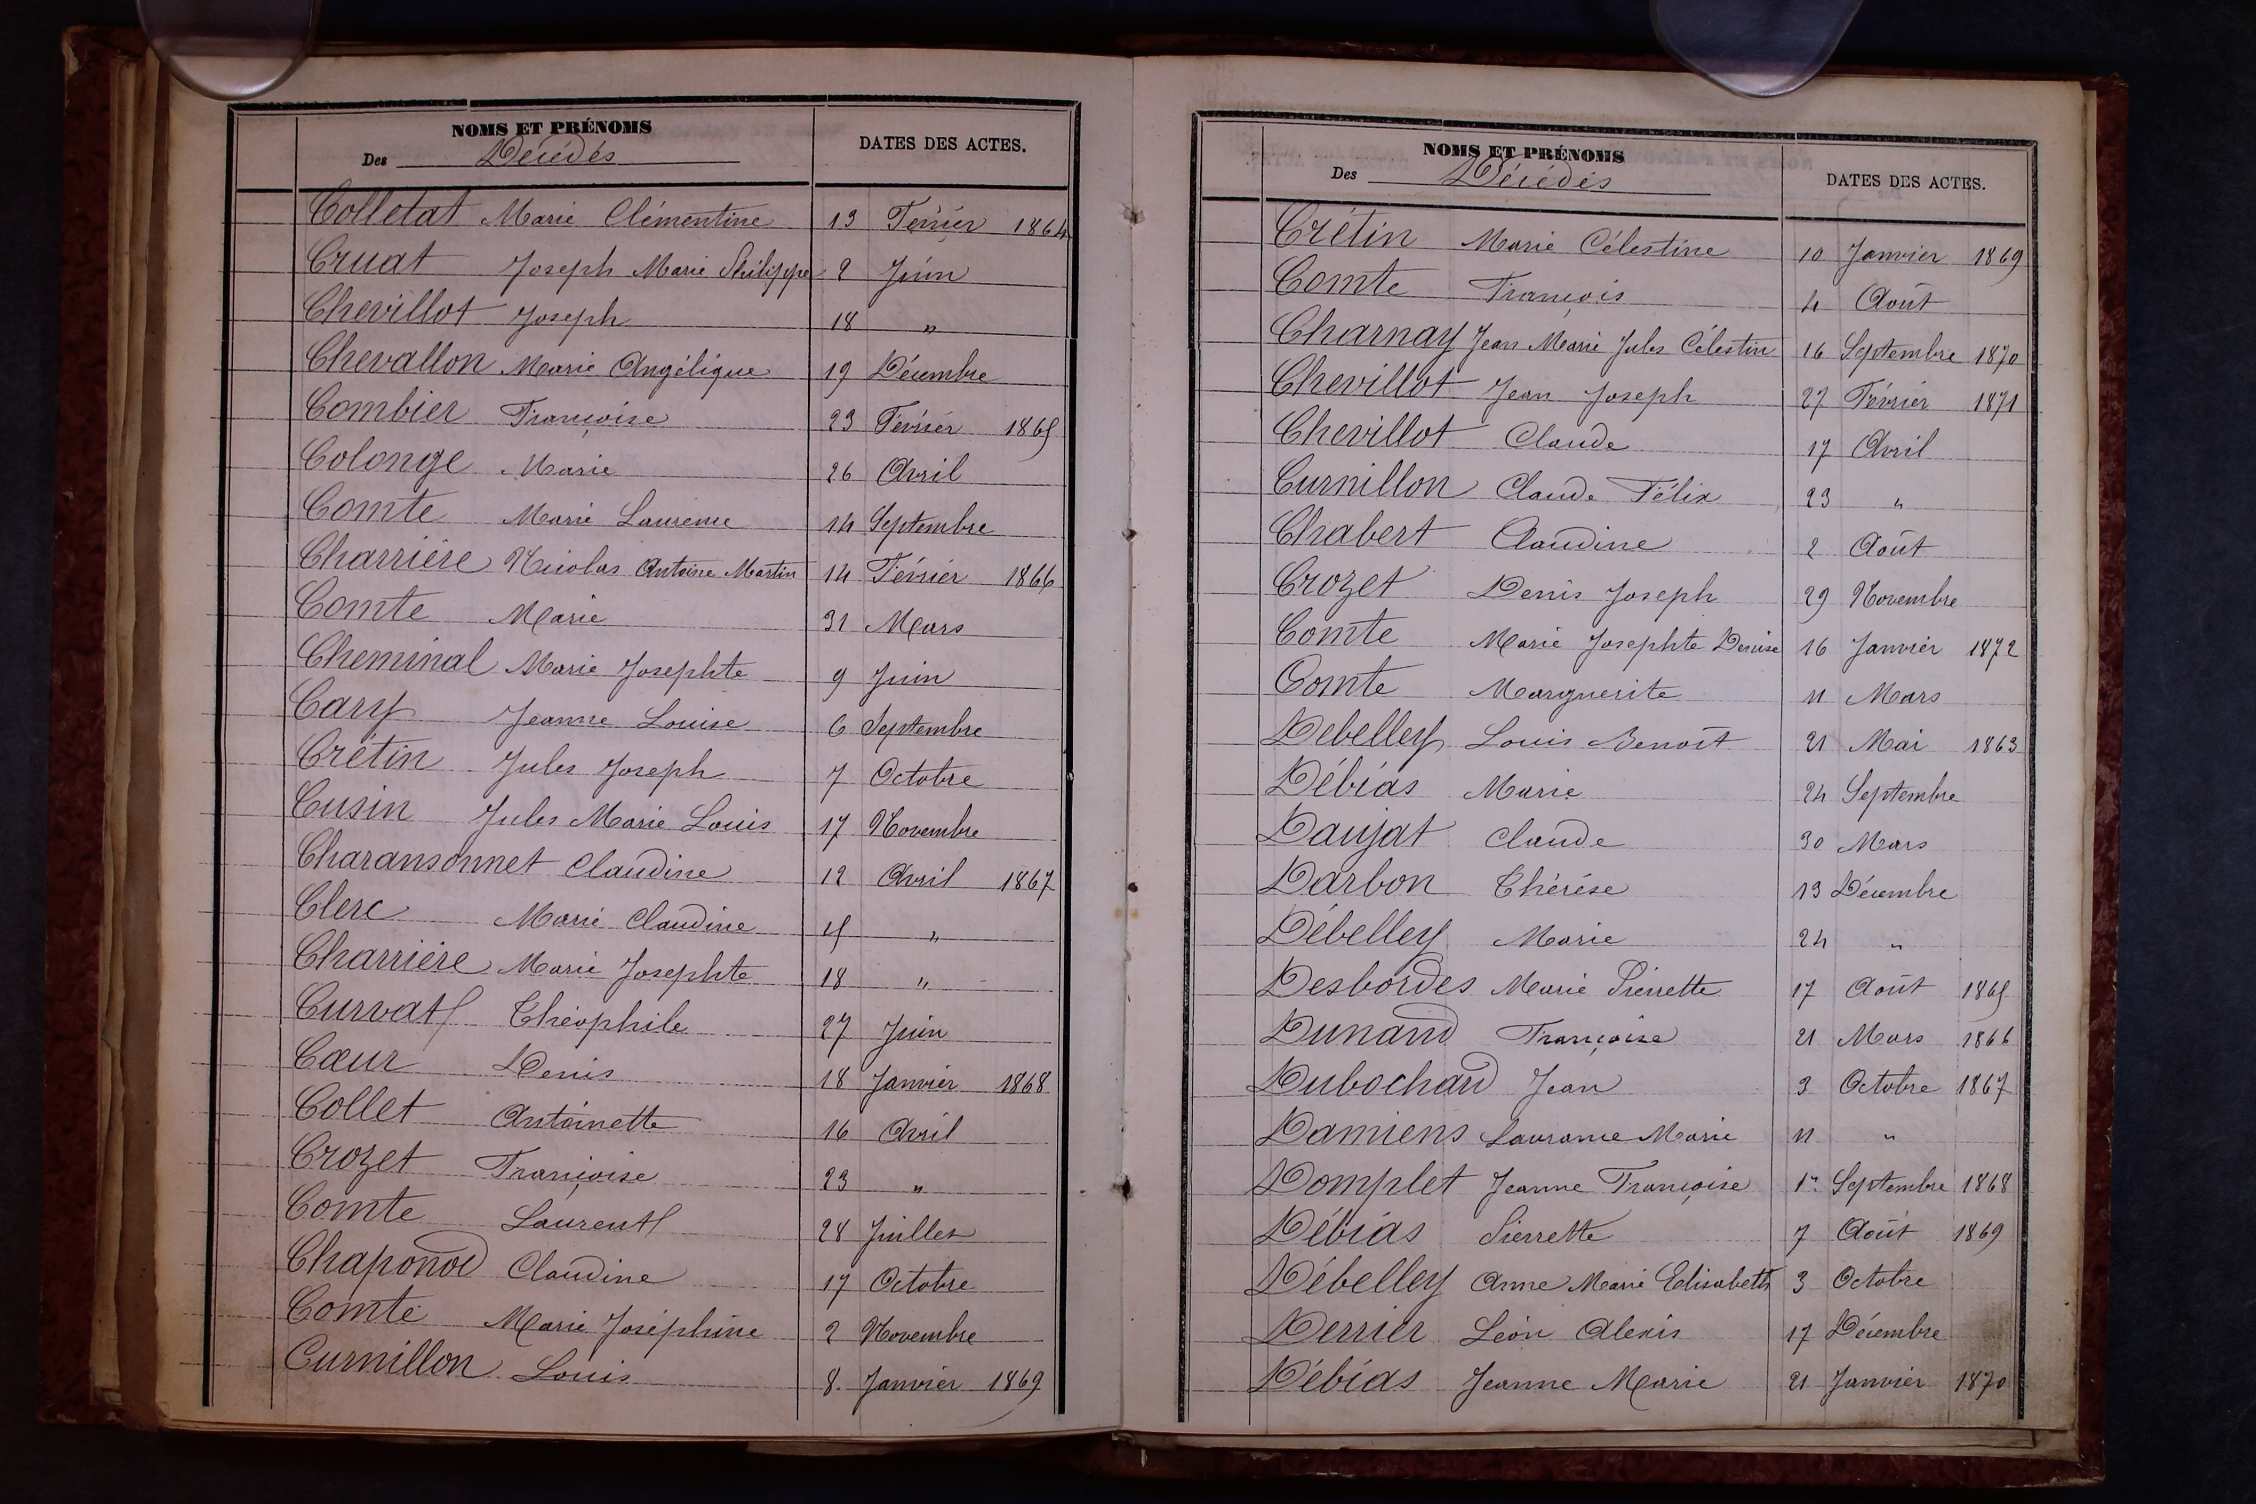 NOMS ET PRÉNOMS
Des Décédés
DATES DES ACTES.
Colletat Marie Clémentine 13 Février 1864
Cruat Joseph Marie Philippe 2 Juin
Chevillot Joseph 18 "
Chevallon Marie Angélique 19 Décembre
Combier Françoise 23 Février 1865
Colonge Marie 26 Avril
Comte Marie Laurence 14 Septembre
Charrière Nicolas Antoine Martin 14 Février 1866
Comte Marie 31 Mars
Cheminal Marie Josephte 9 Juin
Cary Jeanne Louise 6 Septembre
Crétin Jules Joseph 7 Octobre
Cusin Jules Marie Louis 17 Novembre
Charansonnet Claudine 12 Avril 1867
Clerc Marie Claudine 15 "
Charrière Marie Josephte 18 "
Curvat Théophile 27 Juin
Cœur Denis 18 Janvier 1868
Collet Antoinette 16 Avril
Crozet Françoise 23 "
Comte Laurent 28 Juillet
Chaponod Claudine 17 Octobre
Comte Marie Joséphine 2 Novembre
Curnillon Louis 8 Janvier 1869
NOMS ET PRÉNOMS
Des Décédés
DATES DES ACTES.
Crétin Marie Célestine 10 Janvier 1869
Comte François 4 Août
Charnay Jean Marie Jules Célestin 16 Septembre 1870
Chevillot Jean Joseph 27 Février 1871
Chevillot Claude 17 Avril
Curnillon Claude Félix 23 "
Chabert Claudine 2 Août
Crozet Denis Joseph 29 Novembre
Comte Marie Josephte Denise 16 Janvier 1872
Comte Marguerite 11 Mars
Debelley Louis Benoît 21 Mai 1863
Débias Marie 24 Septembre
Daujat Claude 30 Mars
Darbon Thérèse 13 Décembre
Débelley Marie 24 "
Desbordes Marie Pierrette 17 Août 1865
Dunand Françoise 21 Mars 1866
Dubochard Jean 3 Octobre 1867
Damiens Laurance Marie 11 "
Domplet Jeanne Françoise 1er Septembre 1868
Débias Pierrette 7 Août 1869
Débelley Anne Marie Elisabeth 3 Octobre
Derrier Léon Alexis 17 Décembre
Débias Jeanne Marie 21 Janvier 1870